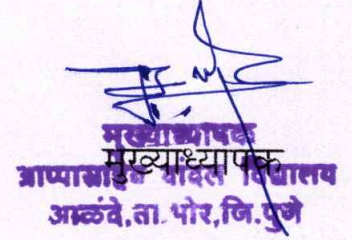 मुख्याध्यापक
मुख्याध्यापक
आप्पासाहेब पाटील विद्यालय
आळंदे, ता. भोर, जि. पुणे